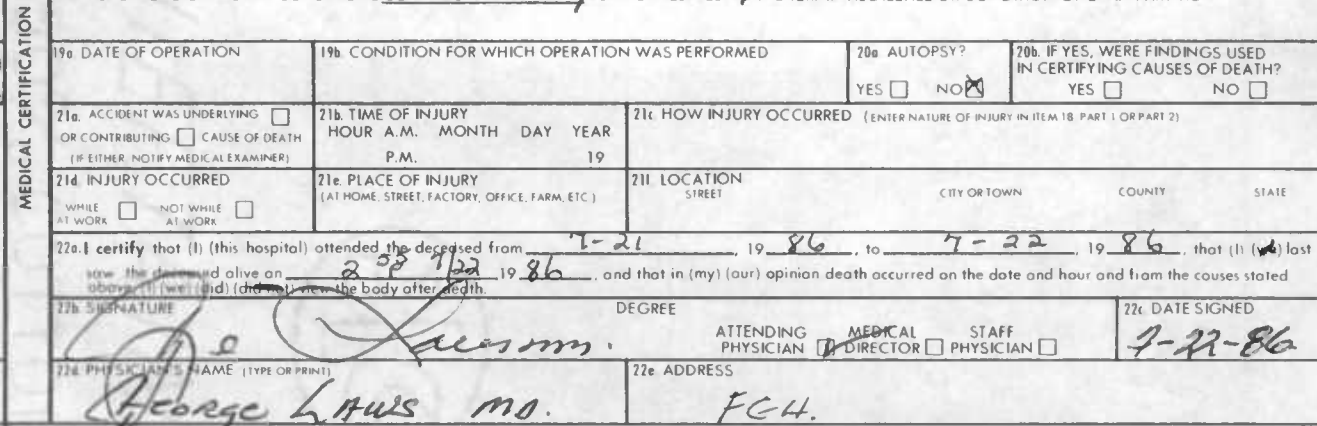 MEDICAL CERTIFICATION
19a. DATE OF OPERATION
19b. CONDITION FOR WHICH OPERATION WAS PERFORMED
20a AUTOPSY?
YES NO
20b. IF YES, WERE FINDINGS USED
IN CERTIFYING CAUSES OF DEATH?
YES NO
21a. ACCIDENT WAS UNDERLYING
OR CONTRIBUTING CAUSE OF DEATH
(IF EITHER, NOTIFY MEDICAL EXAMINER)
21b. TIME OF INJURY
HOUR A.M. MONTH DAY YEAR
P.M. 19
21c HOW INJURY OCCURRED (ENTER NATURE OF INJURY IN ITEM 18 PART 1 OR PART 2)
21d. INJURY OCCURRED
WHILE AT WORK NOT WHILE AT WORK
21e. PLACE OF INJURY
(AT HOME, STREET, FACTORY, OFFICE, FARM, ETC)
21f. LOCATION
STREET CITY OR TOWN COUNTY STATE
22a. I certify that (I) (this hospital) attended the deceased from 7-21, 1986, to 7-22, 1986, that (I) (we) last
saw the deceased alive on 7/22 1986, and that in (my) (our) opinion death occurred on the date and hour and from the causes stated
above, (I) (we) (did) (did not) view the body after death.
22b. SIGNATURE DEGREE
ATTENDING PHYSICIAN MEDICAL DIRECTOR STAFF PHYSICIAN
22c. DATE SIGNED
7-22-86
22d. PHYSICIAN'S NAME (TYPE OR PRINT)
George LAWS MD.
22e ADDRESS
FGH.